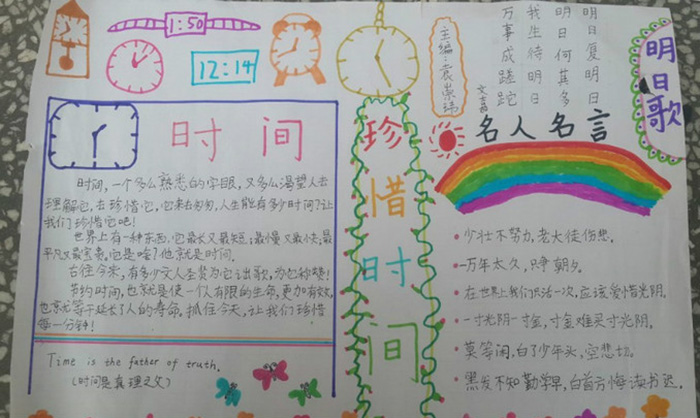 1:50
12:14
时间
时间,一个多么熟悉的字眼,又多么渴望人去
理解它,去珍惜它,它来去匆匆,人生能有多少时间?让
我们珍惜它吧!
世界上有一种东西,它最长又最短;最慢又最快;最
平凡又最宝贵,它是啥?他就是时间.
古往今来,有多少文人圣贤为它讴歌,为它吟颂!
节约时间,也就是使一个人有限的生命,更加有效,
也就等于延长了人的寿命,抓住今天,让我们珍惜
每一分钟!
Time is the father of truth.
(时间是真理之父)
珍惜时间
主编:袁崇玮
明日复明日
明日何其多
我生待明日
万事成蹉跎
文嘉
明日歌
名人名言
少壮不努力,老大徒伤悲.
一万年太久,只争朝夕.
在世界上我们只活一次,应该爱惜光阴.
一寸光阴一寸金,寸金难买寸光阴.
莫等闲,白了少年头,空悲切.
黑发不知勤学早,白首方悔读书迟.